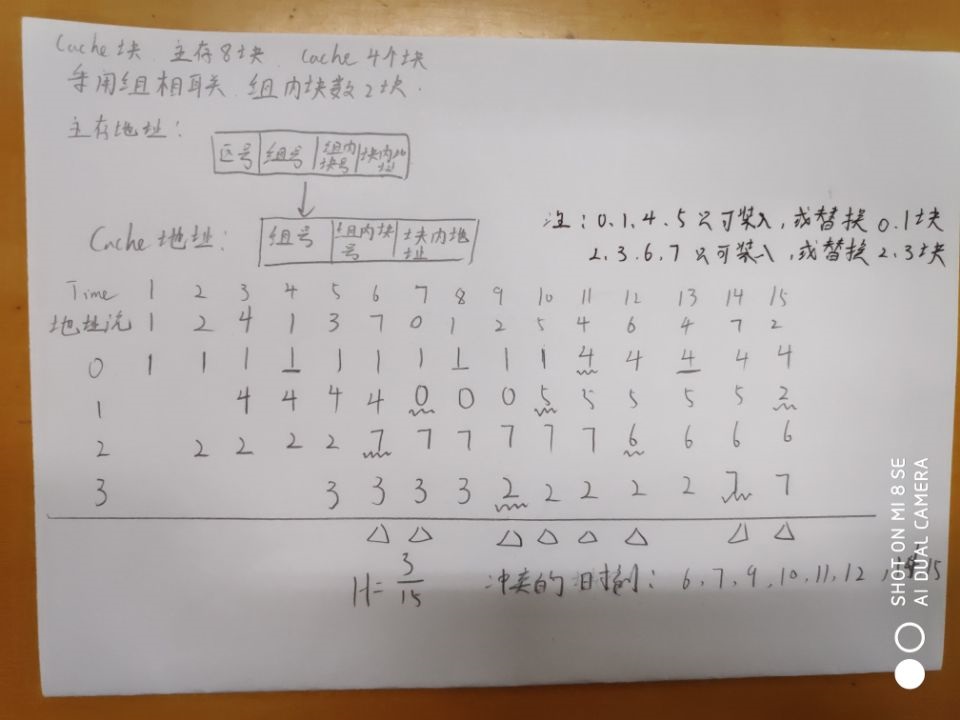 Cache块 主存8块 Cache 4个块
采用组相联 组内块数2块.
主存地址: 区号 组号 组内块号 块内地址
Cache地址: 组号 组内块号 块内地址
注: 0.1.4.5只可装入, 或替换0.1块
2.3.6.7只可装入, 或替换2.3块
Time 1 2 3 4 5 6 7 8 9 10 11 12 13 14 15
地址流 1 2 4 1 3 7 0 1 2 5 4 6 4 7 2
0 1 1 1 1 1 1 1 1 1 1 4 4 4 4 4
1 4 4 4 4 0 0 0 5 5 5 5 5 2
2 2 2 2 2 7 7 7 7 7 7 6 6 6 6
3 3 3 3 3 2 2 2 2 2 7 7
△ △ △ △ △ △ △ △
H=3/15 冲突的时刻: 6,7,9,10,11,12,14,15
SHOT ON MI 8 SE
AI DUAL CAMERA